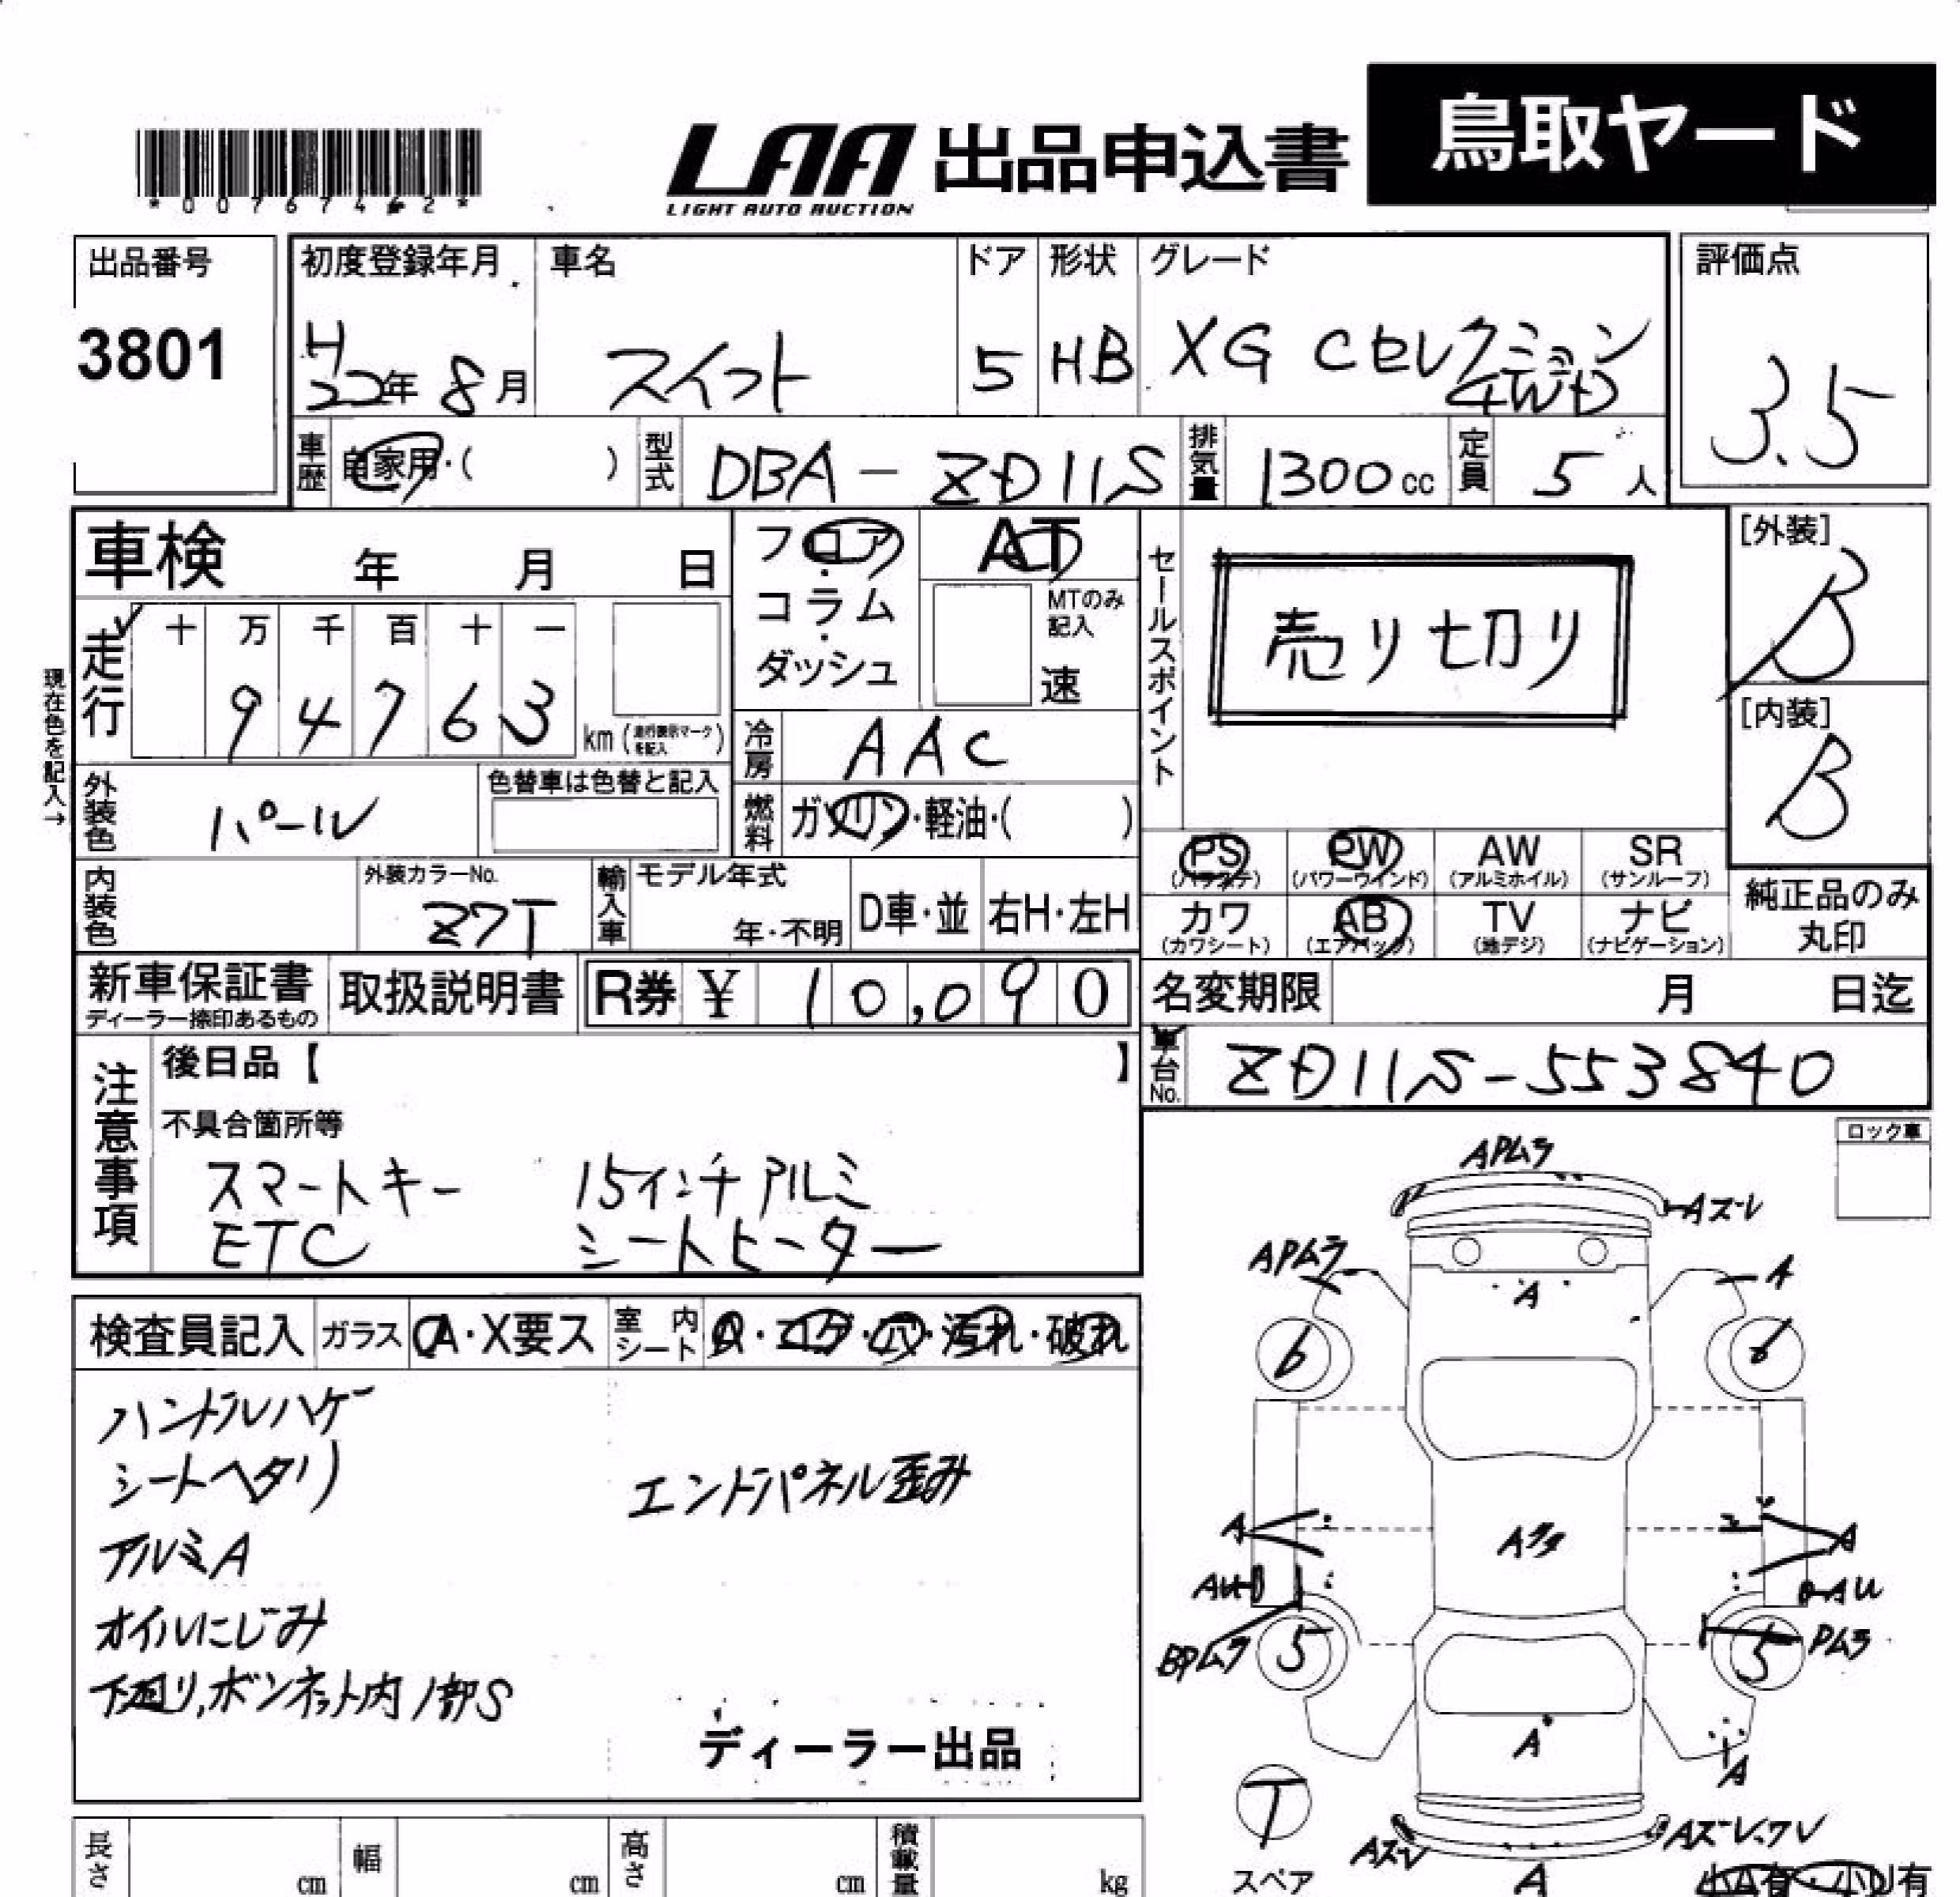 鳥取ヤード
LAA 出品申込書
LIGHT AUTO AUCTION
出品番号
3801
初度登録年月
H
22年 8月
車名
スイフト
ドア
5
形状
HB
グレード
XG Cセレクション
4WD
評価点
3.5
車歴 自家用・( )
型式 DBA-ZD11S
排気量 1300cc
定員 5人
車検 年 月 日
走行 十 万 千 百 十 一
9 4 7 6 3
km(走行表示マークを記入)
現在色を記入→
外装色 パール
色替車は色替と記入
内装色
外装カラーNo.
Z7T
フロア・コラム・ダッシュ
AT
MTのみ記入
速
冷房 AAC
燃料 ガソリン・軽油・( )
輸入車
モデル年式
年・不明
D車・並
右H・左H
セールスポイント
売り切り
[外装]
B
[内装]
B
PS
(パワステ)
PW
(パワーウィンド)
AW
(アルミホイル)
SR
(サンルーフ)
カワ
(カワシート)
AB
(エアバッグ)
TV
(地デジ)
ナビ
(ナビゲーション)
純正品のみ
丸印
新車保証書
ディーラー捺印あるもの
取扱説明書
R券 ¥ 10,090
名変期限 月 日迄
車台No. ZD11S-553840
注意事項
後日品【 】
不具合箇所等
スマートキー 15インチアルミ
ETC シートヒーター
ロック車
検査員記入
ガラス A・X要ス
室内シート A・コゲ・穴・汚れ・破れ
ハンドルハゲ
シートヘタリ
エンドパネル歪み
アルミA
オイルにじみ
下廻り,ボンネット内1部S
ディーラー出品
APムラ
Aズレ
APムラ
A
A
6
6
A
A
AU
AU
BPムラ
5
5
Pムラ
A
A
T
スペア
Aズレ
A
Aズレ、ワレ
長さ cm
幅 cm
高さ cm
積載量 kg